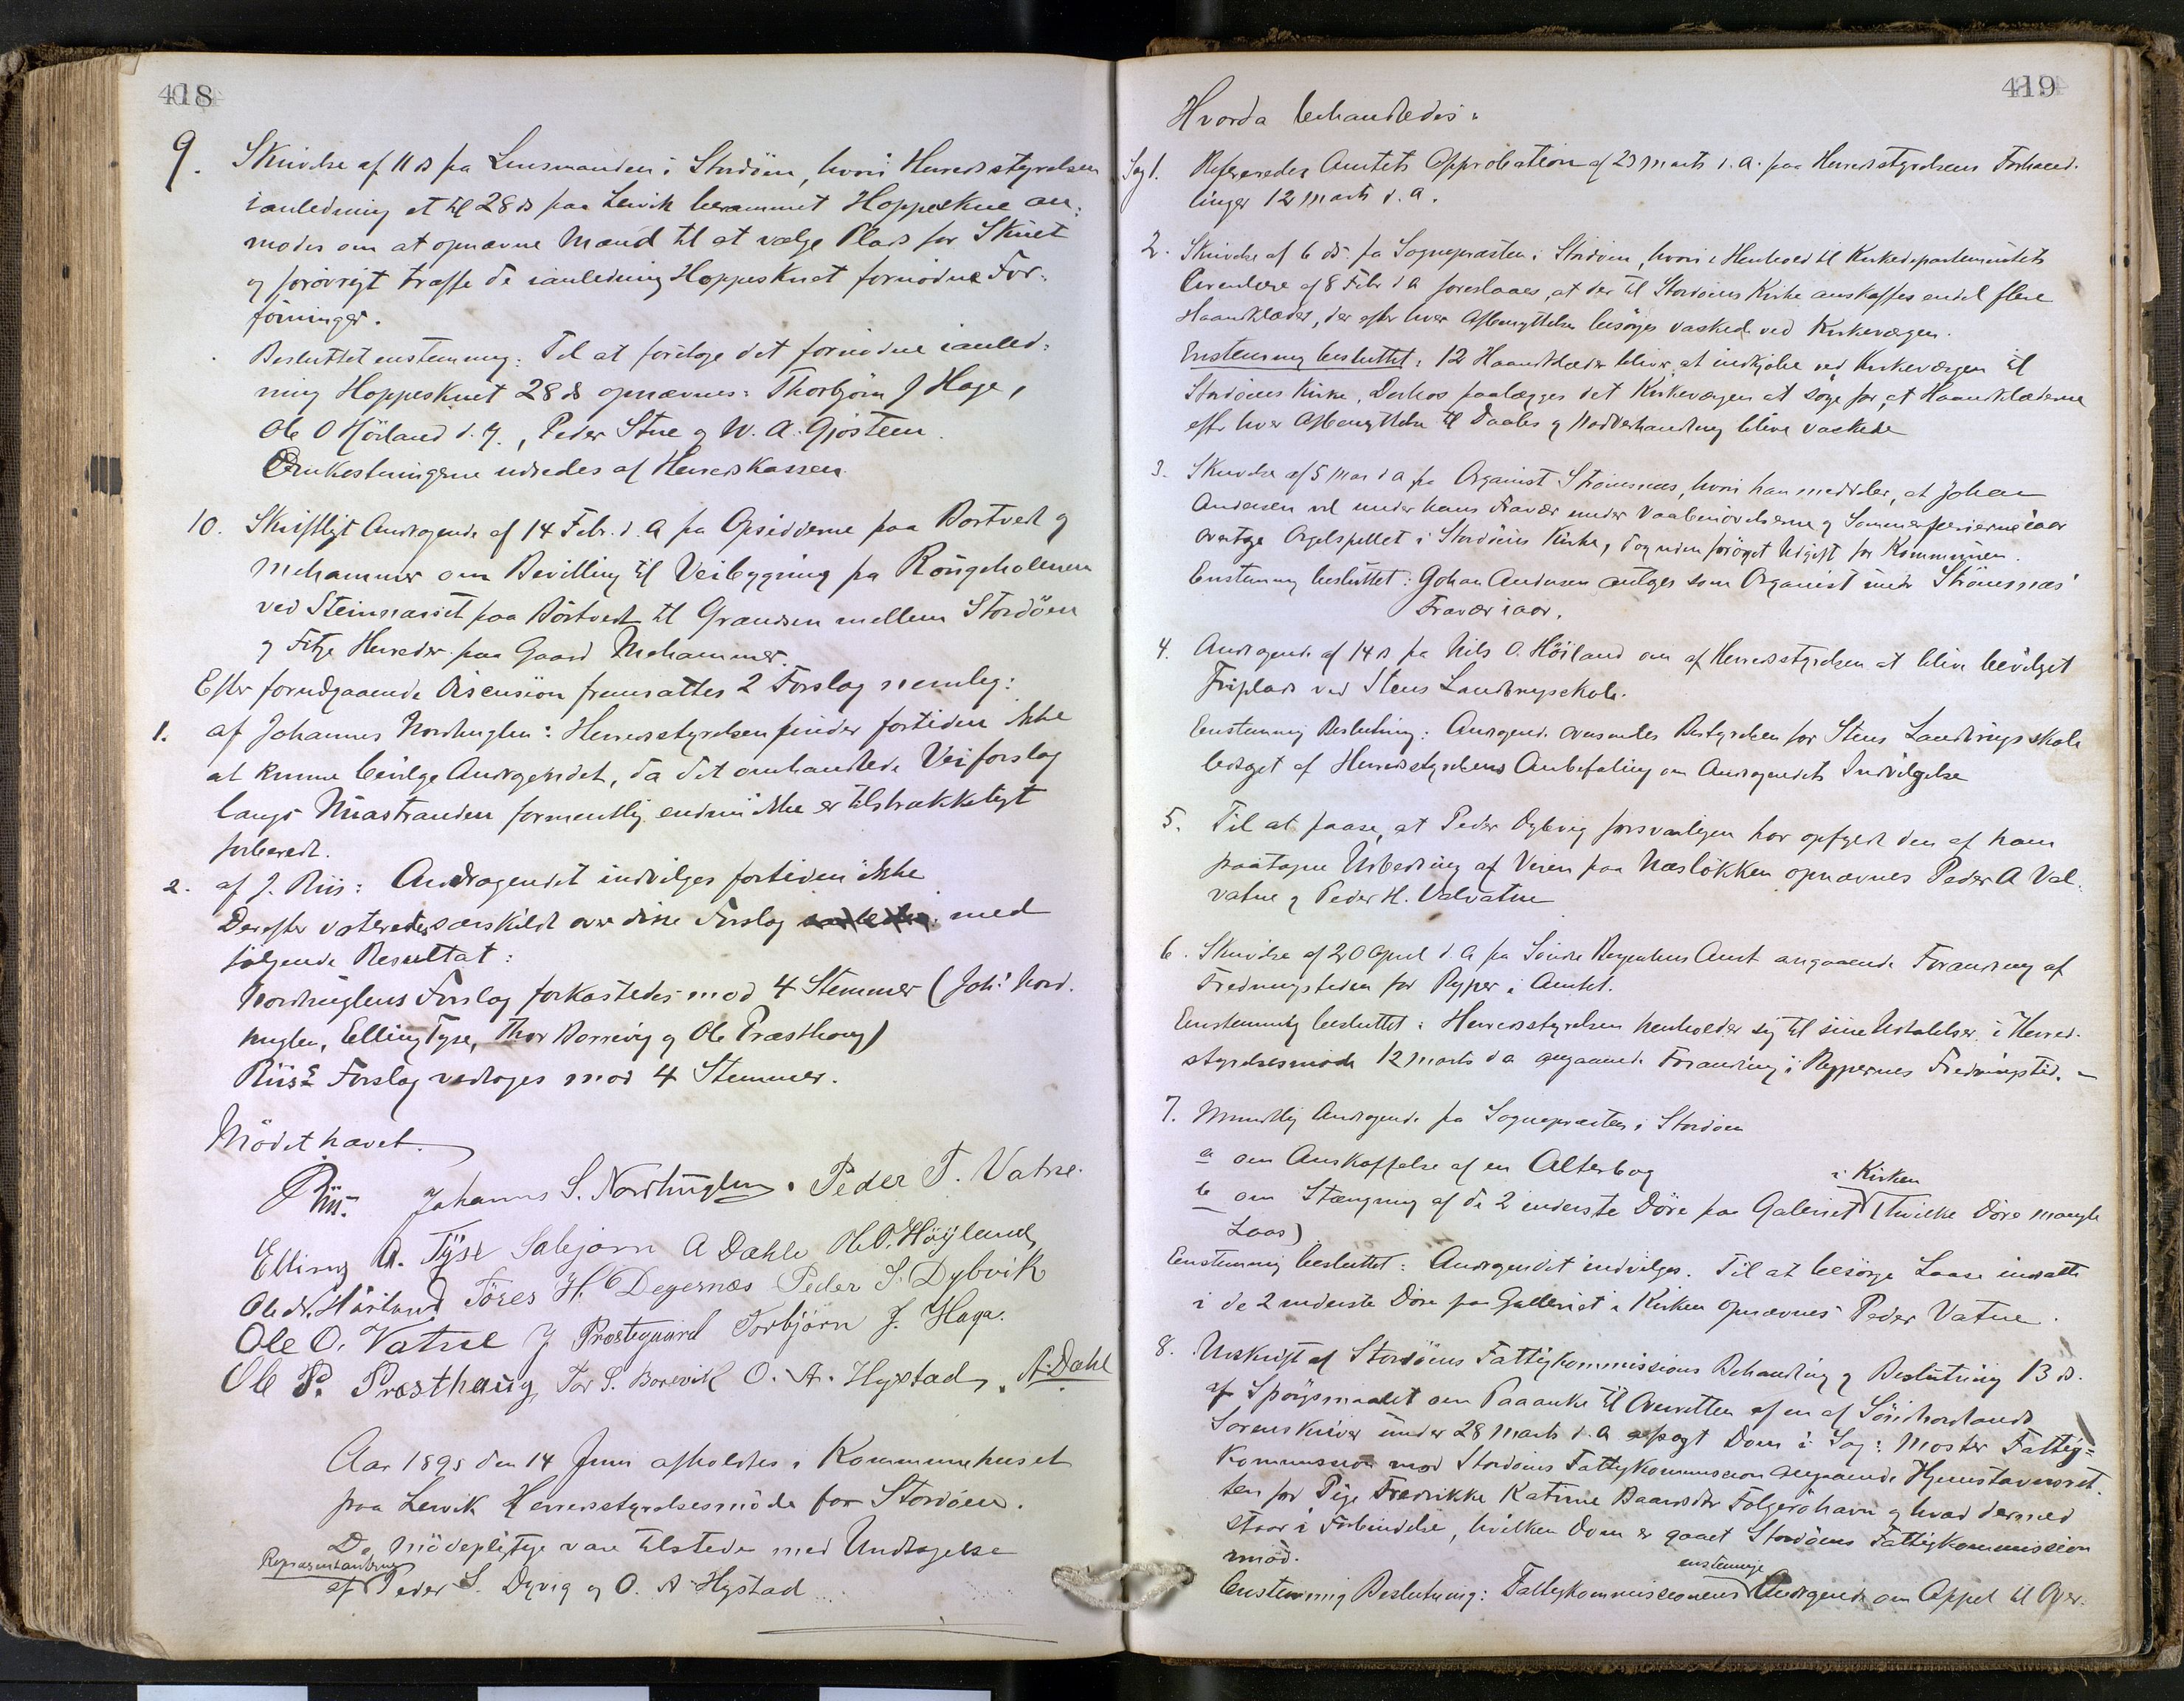 418
9. Skrivelse af 11 ds fra Lensmanden i Stordöen, hvori Herredsstyrelsen
ianledning et til 28 ds paa Lervik berammet Hoppeskue an-
modes om at opnævne Mænd til at vælge Plads for Skuet
og forövrigt træffe de ianledning Hoppeskuet fornödne For-
föininger.
Besluttet enstemmig: Til at foretage det fornödne ianled-
ning Hoppeskuet 28 ds opnævnes: Thorbjörn J Hage,
Ole O Höiland d. y., Peder Stue og W. A. Gjösteen.
Omkostningerne udredes af Herredskassen.
10. Skriftligt Andragende af 14 Febr. d. A fra Opsidderne paa Bortvedt og
Mehammer om Bevilling til Veibygning fra Rongeholmen
ved Steinnaset paa Börtvedt til Grændsen mellem Stordöen
og Fitje Herreder paa Gaard Mehammer.
Efter forudgaaende Discusion fremsattes 2 Forslag nemlig:
1. af Johannes Nordhuglen: Herredsstyrelsen finder fortiden ikke
at kunne bevilge Andragendet, da det omhandlede Veiforslag
langs straanden formentlig endnu ikke er tilstrækkeligt
forberedt.
2. af J. Riis: Andragendet indvilges fortiden ikke
Derefter voteredes særskildt over disse Forslag med
fölgende Resultat:
Nordhuglens Forslag forkastedes mod 4 Stemmer (Johs Nord-
huglen, Elling Tyse, Thor Borrevig og Ole Præsthoug)
Riis's Forslag vedtoges mod 4 Stemmer.
Mödet hævet.
Riis. Johannes S. Nordhuglen. Peder T. Vatne.
Elling A. Tÿse Salejorn A Dahle Ol. O. Höÿland
Ole N. Hörland Töres H. Degernæs Peder S. Dybvik
Ole O. Vatne J Prestegaard Torbjörn J. Haga.
Ole P. Præsthaug, Tor S. Borevik O. A. Hystad, A. Dahl
Aar 1895 den 14 Juni afholdtes i Kommunehuset
paa Lervik Herredsstyrelsesmöde for Stordöen.
De mödepligtige vare tilstede med Undtagelse
Repræsentanterne
af Peder S. Dyvig og O. A Hystad
419
Hvorda behandledes:
Sag 1. Refereredes Amtets Approbation af 23 Marts d. A. paa Herredsstyrelsens Forhand-
linger 12 Marts d. A.
2. Skrivelse af 6 ds. fra Sognepræsten i Stordöen, hvori i Henhold til Kirkedepartementets
Cirkulære af 8 Febr d A foreslaaes, at der til Stordöens Kirke anskaffes endel flere
Haandklæder, der efter hver Afbenyttelse besörges vasked ved Kirkeværgen.
Enstemmig besluttet: 12 Haandklæder bliver at indkjöbe ved Kirkeværgen til
Stordöens Kirke, Derhos paalægges det Kirkeværgen at sörge for, at Haandklæderne
efter hver Afbenyttelse til Daabs og Nadverhandling blive vaskede
3. Skrivelse af 5 Mai d A fra Organist Strömsnæs, hvori han meddeler, at Johan
Andersen vil under hans Fravær under Vaabenövelserne og Sommerferierne iaar
overtage Orgelspillet i Stordöens Kirke, dog uden foröget Udgift for Kommunen.
Enstemmig besluttet: Johan Andersen antages som Organist under Strömsnæs'
Fravær iaar.
4. Andragende af 14 ds fra Nils O. Höiland om af Herredsstyrelsen at blive bevilget
Friplads ved Stens Landbrugsskole.
Enstemmig Beslutning: Andragende oversendes Bestyrelsen for Stens Landbrugsskole
ledsaget af Herredsstyrelsens Anbefaling om Andragendets Indvilgelse
5. Til at paase, at Peder Dybvig forsvarligen har opfyldt den af ham
paatagne Udbedring af Veien paa Næslökken opnævnes Peder A Val-
vatne og Peder H. Valvatne
6. Skrivelse af 20 April d. A fra Söndre Bergenhus Amt angaaende Forandring af
Fredningstiden for Ryper i Amtet.
Enstemmig besluttet: Herredsstyrelsen henholder sig til sine Udtalelser i Herred-
styrelsesmöde 12 Marts d a angaaende Forandring i Rypernes Fredningstid. –
7. Mundtlig Andragende fra Sognepræsten i Stordöen
a om Anskaffelse af en Alterbog
i Kirken
b om Stængning af de 2 inderste Döre paa Galleriet (hvilke Döre mangle
Laas)
Enstemmig besluttet: Andragendet indvilges. Til at besörge Laase indsatte
i de 2 inderste Döre paa Galleriet i Kirken opnævnes Peder Vatne.
8. Udskrift af Stordöens Fattigkommissions Behandling og Beslutning 13 ds.
af Spörgsmaalet om Paaanke til Overretten af en af Söndhordlands
Sorenskriver under 28 Marts d. A afsagt Dom i Sag: Moster Fattig-
kommission mod Stordöens Fattigkommission angaaende Hjemstavnsret-
ten for Pige Fredrikke Katrine Baardsdtr Folgeröhavn og hvad dermed
staar i Forbindelse, hvilken Dom er gaaet Stordöens Fattigkommission
imod.
enstemmige
Enstemmig Beslutning: Fattigkommissionens Andragende om Appel til Over-